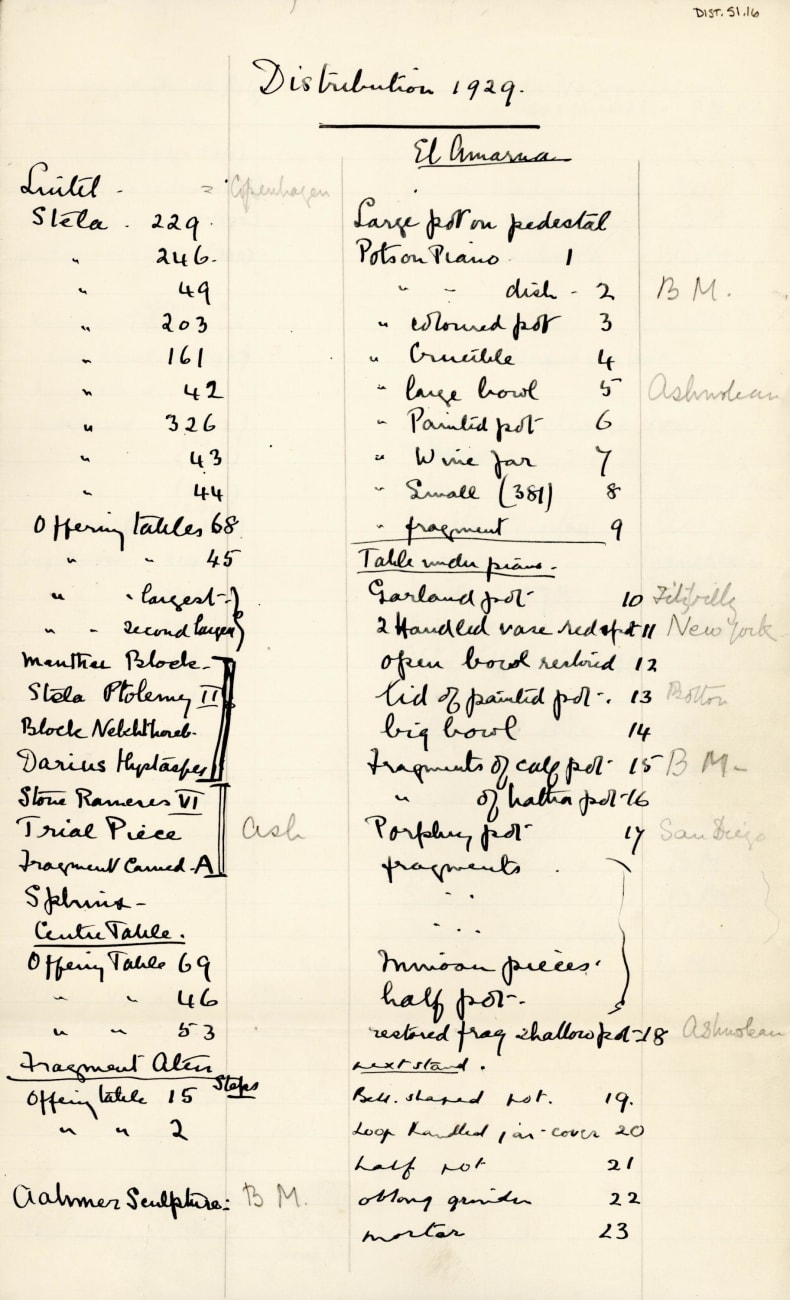 DIST. 51.16
Distribution 1929.
El Amarna
Lintel - = Copenhagen
Stela - 229.
" 246.
" 49
" 203
" 161
" 42
" 326
" 43
" 44
Offering tables 68
" " 45
" " largest -
" - second largest
Block -
Stela Ptolemy II
Block
Darius Hystaspes
Stone Rameses VI
Trial Piece Ash
Fragment Carved - A
Sphinx -
Centre Table.
Offering Table 69
" " 46
" " 53
Fragment Aten
Steps
Offering table 15
" " 2
Aahmes Sculpture: B M.
Large pot on pedestal
Pots on Piano 1
" - dish - 2 B M.
" coloured pot 3
" Crucible 4
" large bowl 5 Ashmolean
" Painted pot 6
" Wine jar 7
" Small (381) 8
" fragment 9
Table under piano.
Garland pot 10
2 Handled vase red 11 New York
open bowl restored 12
lid of painted pot. 13 Bolton
big bowl 14
Fragments of calf pot 15 B M -
" of hathor pot 16
Porphry pot 17 San Diego
fragments
" "
" "
Minoan pieces.
half pot -
restored frag shallow pot - 18 Ashmolean
next stand.
Bell shaped pot. 19.
Loop handled jar-cover 20
half pot 21
oblong grinder 22
mortar 23